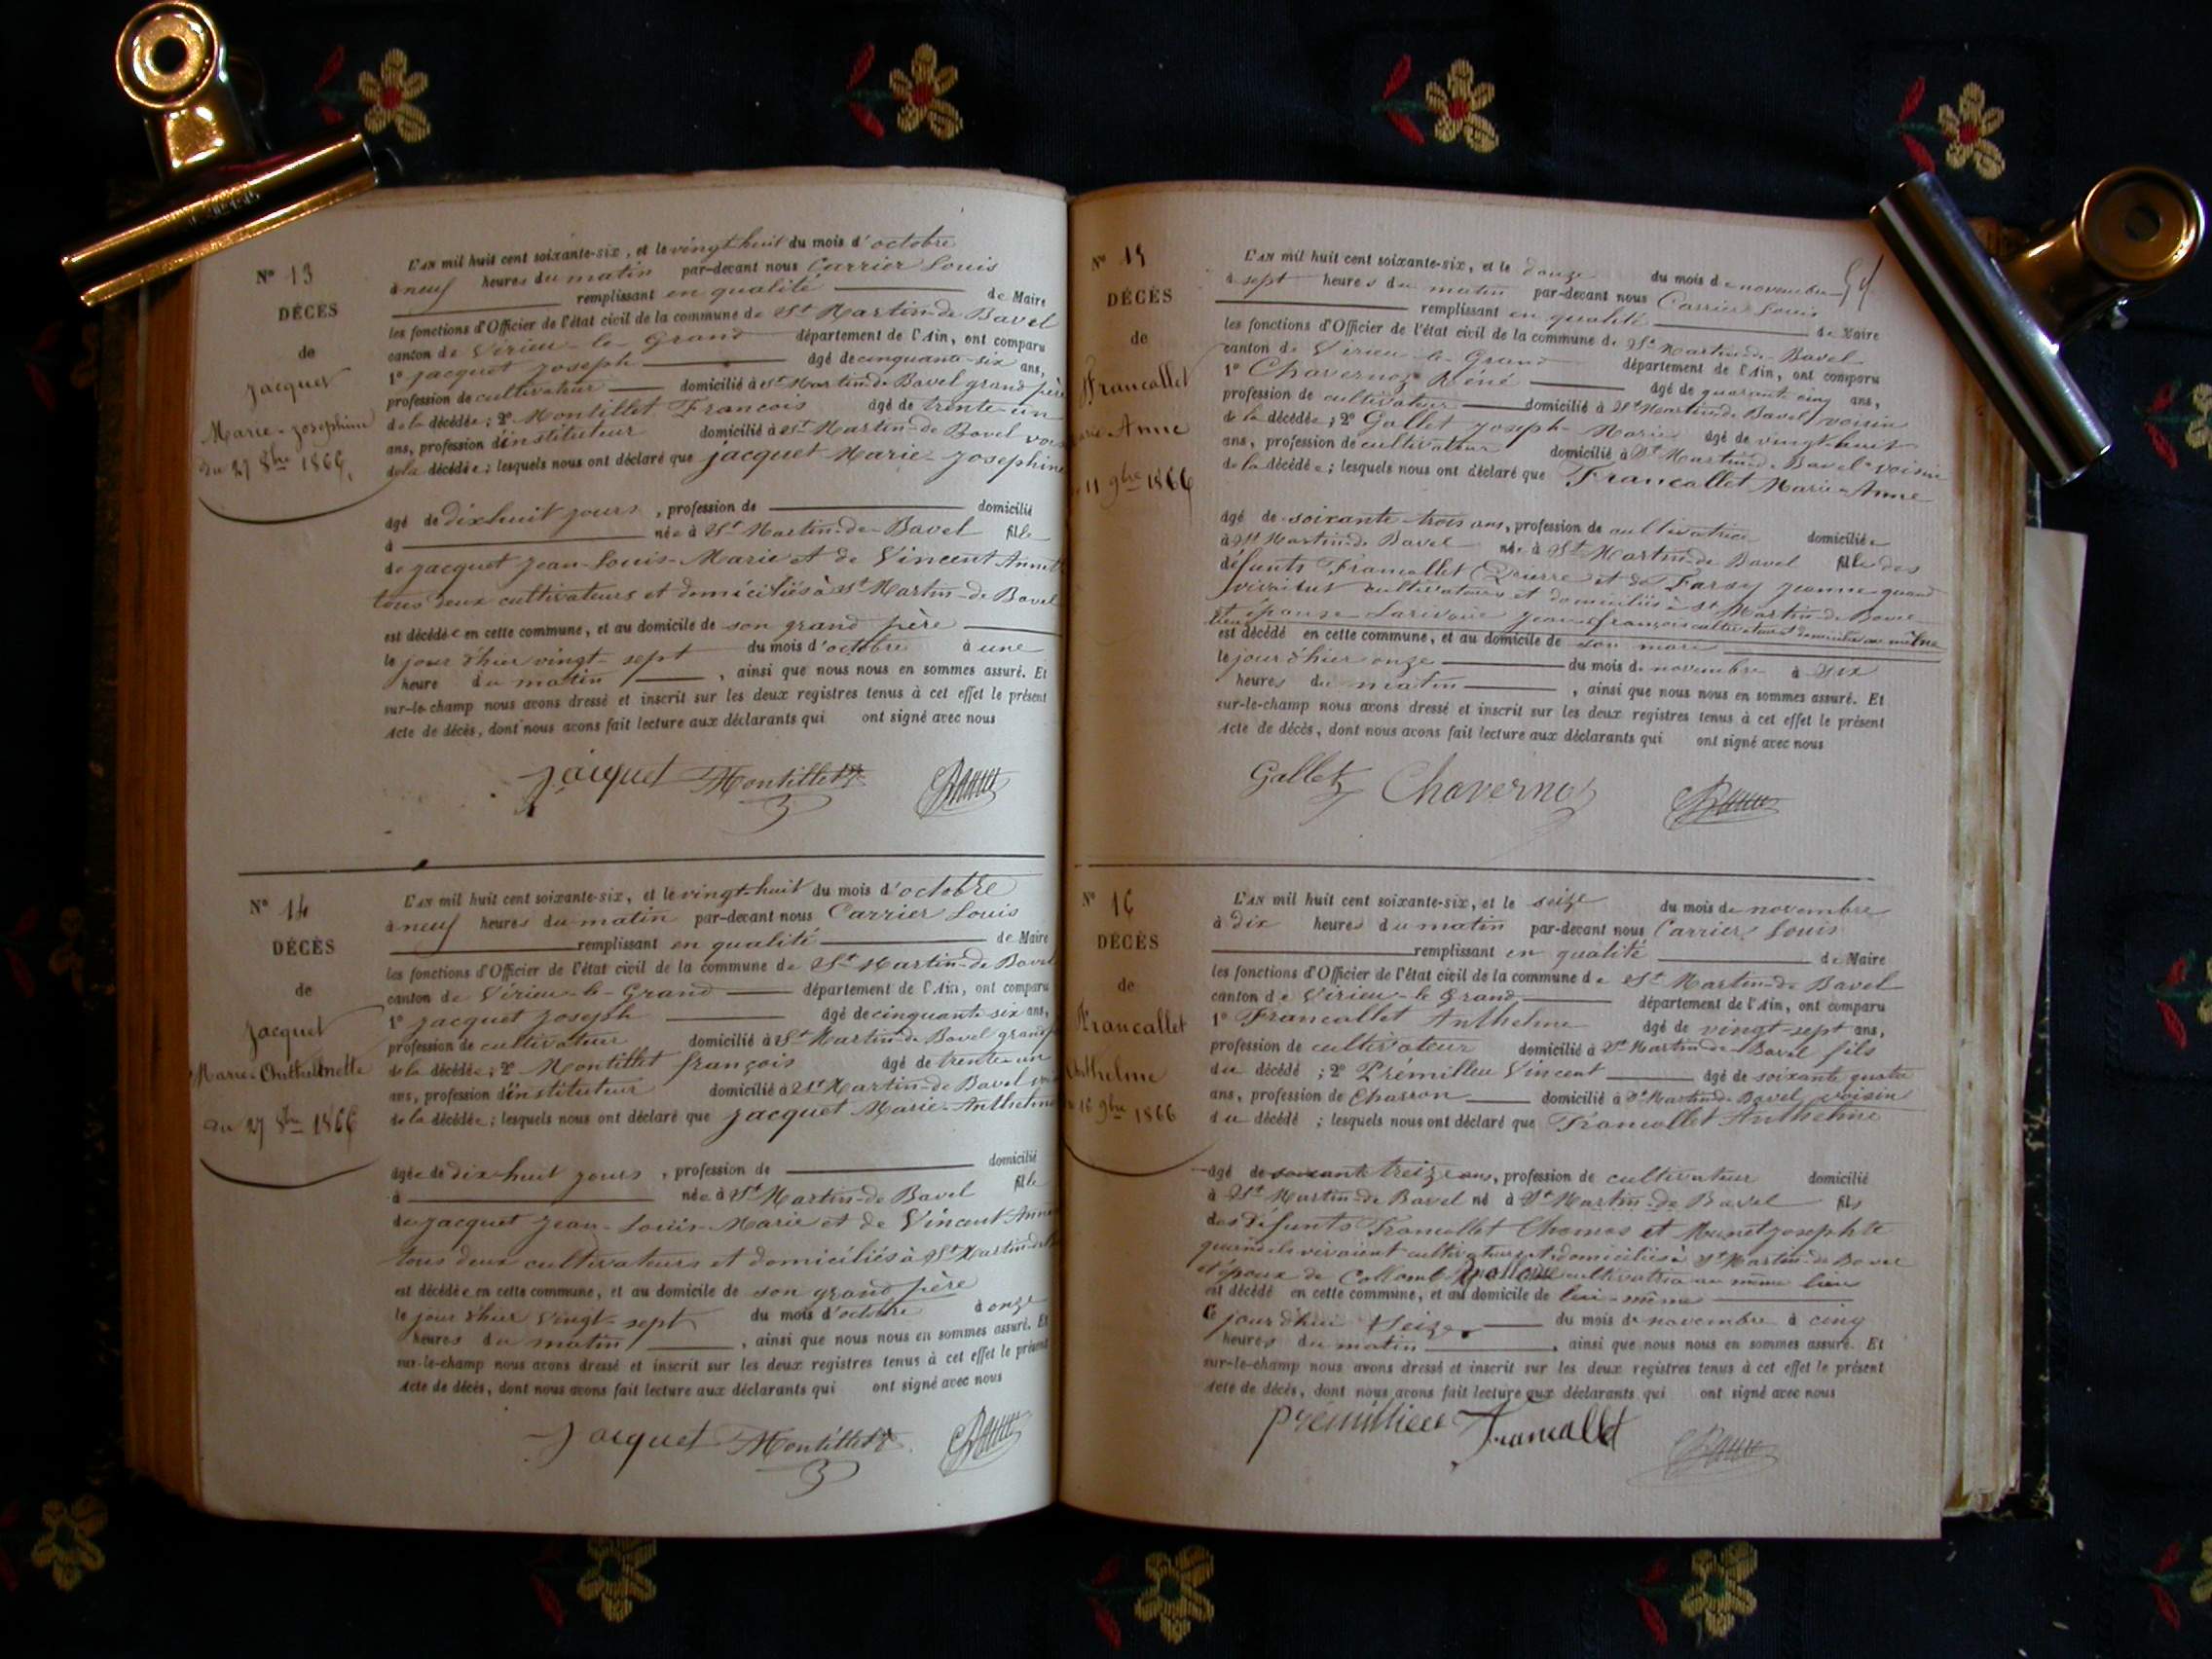 N° 13
DÉCÈS
de
Jacquet
Marie-Josephine
du 27 8bre 1866
L'AN mil huit cent soixante-six, et le vingt-huit du mois d'octobre
à neuf heures du matin par-devant nous Carrier Louis
remplissant en qualité de Maire
les fonctions d'Officier de l'état civil de la commune de St Martin-de Bavel
canton de Virieu-le-Grand département de l'Ain, ont comparu
1° Jacquet Joseph âgé de cinquante-six ans,
profession de cultivateur domicilié à St Martin-de Bavel grand père
de la décédée; 2° Montillet François âgé de trente-un
ans, profession d'instituteur domicilié à St Martin-de Bavel
de la décédée; lesquels nous ont déclaré que Jacquet Marie-Josephine
âgé de dix huit jours, profession de domicilié
à née à St Martin-de-Bavel fille
de Jacquet Jean-Louis-Marie et de Vincent
tous deux cultivateurs et domiciliés à St Martin-de Bavel
est décédée en cette commune, et au domicile de son grand père
le jour d'hier vingt-sept du mois d'octobre à une
heure du matin, ainsi que nous nous en sommes assuré. Et
sur-le-champ nous avons dressé et inscrit sur les deux registres tenus à cet effet le présent
Acte de décès, dont nous avons fait lecture aux déclarants qui ont signé avec nous
Jacquet Montillet
N° 14
DÉCÈS
de
Jacquet
du 27 8bre 1866
L'AN mil huit cent soixante-six, et le vingt-huit du mois d'octobre
à neuf heures du matin par-devant nous Carrier Louis
remplissant en qualité de Maire
les fonctions d'Officier de l'état civil de la commune de St Martin-de Bavel
canton de Virieu-le-Grand département de l'Ain, ont comparu
1° Jacquet Joseph âgé de cinquante six ans,
profession de cultivateur domicilié à St Martin-de Bavel
de la décédée; 2° Montillet françois âgé de trente-un
ans, profession d'instituteur domicilié à St Martin-de Bavel
de la décédée; lesquels nous ont déclaré que Jacquet Marie-
âgée de dix-huit jours, profession de domicilié
à née à St Martin-de Bavel fille
de Jacquet Jean-Louis-Marie et de Vincent
tous deux cultivateurs et domiciliés à St Martin-de
est décédée en cette commune, et au domicile de son grand père
le jour d'hier vingt-sept du mois d'octobre à onze
heures du matin, ainsi que nous nous en sommes assuré. Et
sur-le-champ nous avons dressé et inscrit sur les deux registres tenus à cet effet le présent
Acte de décès, dont nous avons fait lecture aux déclarants qui ont signé avec nous
Jacquet Montillet
N° 15
DÉCÈS
de
Francallet
Anne
11 9bre 1866
L'AN mil huit cent soixante-six, et le douze du mois de novembre
à sept heures du matin par-devant nous Carrier Louis
remplissant en qualité de Maire
les fonctions d'Officier de l'état civil de la commune de St Martin-de-Bavel
canton de Virieu-le-Grand département de l'Ain, ont comparu
1° Chavernoz Réné âgé de quarante cinq ans,
profession de cultivateur domicilié à St Martin-de Bavel, voisin
de la décédée; 2° Gallet Joseph-Marie âgé de vingt-huit
ans, profession de cultivateur domicilié à St Martin-de Bavel voisin
de la décédée; lesquels nous ont déclaré que Francallet Marie-Anne
âgé de soixante-trois ans, profession de cultivatrice domiciliée
à St Martin-de Bavel née à St Martin-de Bavel fille des
défunts Francallet Pierre et de Jeanne quand
vivaient cultivateurs et domiciliés à St Martin-de Bavel
et épouse Jean-françois cultivateur domicilié au même
lieu
est décédé en cette commune, et au domicile de son mari
le jour d'hier onze du mois de novembre à six
heures du matin, ainsi que nous nous en sommes assuré. Et
sur-le-champ nous avons dressé et inscrit sur les deux registres tenus à cet effet le présent
Acte de décès, dont nous avons fait lecture aux déclarants qui ont signé avec nous
Gallet Chavernoz
N° 16
DÉCÈS
de
Francallet
Anthelme
16 9bre 1866
L'AN mil huit cent soixante-six, et le seize du mois de novembre
à dix heures du matin par-devant nous Carrier Louis
remplissant en qualité de Maire
les fonctions d'Officier de l'état civil de la commune de St Martin-de Bavel
canton de Virieu-le Grand département de l'Ain, ont comparu
1° Francallet Anthelme âgé de vingt-sept ans,
profession de cultivateur domicilié à St Martin-de-Bavel fils
du décédé; 2° Prémillieu Vincent âgé de soixante quatre
ans, profession de Charron domicilié à St Martin-de Bavel voisin
du décédé; lesquels nous ont déclaré que Francallet Anthelme
âgé de soixante treize ans, profession de cultivateur domicilié
à St Martin-de Bavel né à St Martin-de Bavel fils
des défunts Francallet Thomas et Josephte
quand ils vivaient cultivateurs et domiciliés à St Martin-de Bavel
et époux de Collomb cultivatrice au même lieu
est décédé en cette commune, et au domicile de lui-même
Ce jour d'hui seize du mois de novembre à cinq
heures du matin, ainsi que nous nous en sommes assuré. Et
sur-le-champ nous avons dressé et inscrit sur les deux registres tenus à cet effet le présent
Acte de décès, dont nous avons fait lecture aux déclarants qui ont signé avec nous
Prémillieu Francallet